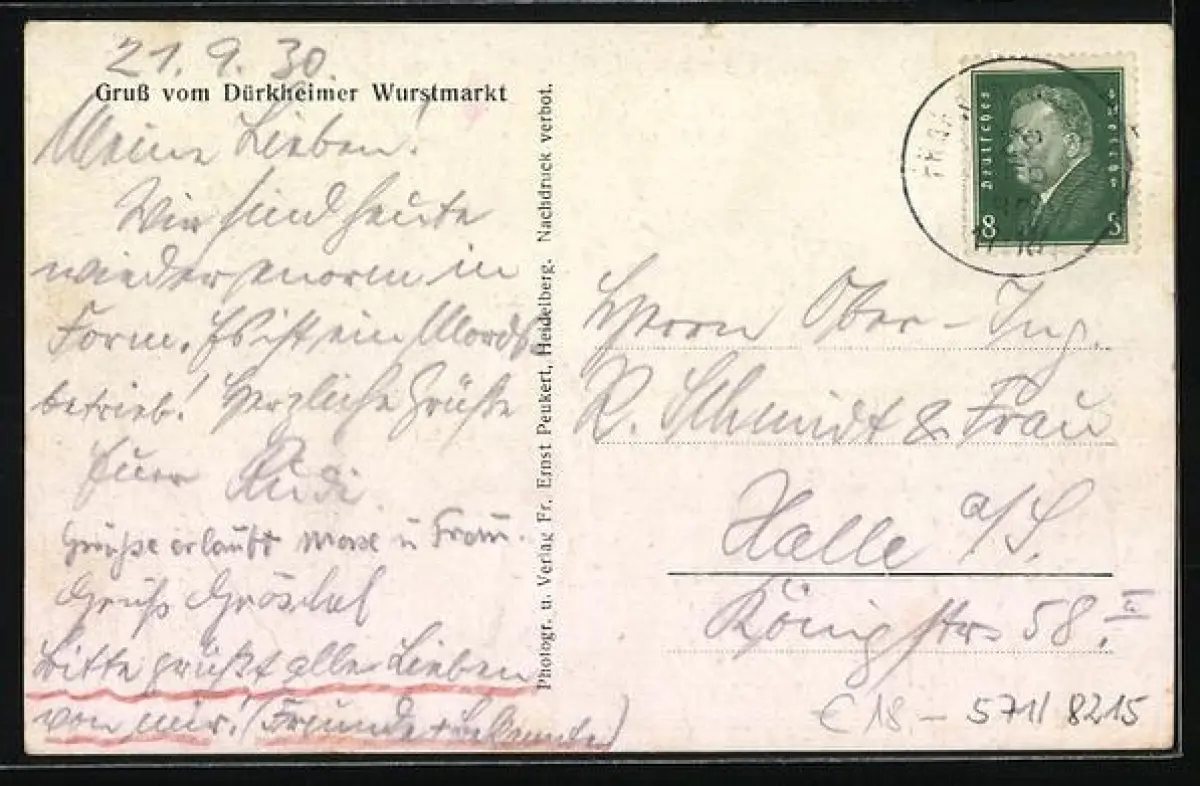 21. 9. 30.
Gruß vom Dürkheimer Wurstmarkt
Meine Lieben!
Wir sind heute
wieder enorm in
Form. Es ist ein Mords-
betrieb! Herzliche Grüße
Euer Rudi
Grüße erlaubt Max u Frau.
Gruß
Bitte grüßt alle Lieben
von mir! (Freunde + Bekannte)
Photogr. u. Verlag Fr. Ernst Peukert, Heidelberg. Nachdruck verbot.
Deutsches Reich
8 8
Herrn Ober-Ing.
R. Schmidt & Frau
Halle a/S.
Königstr. 58. II
€ 18 – 571/8215